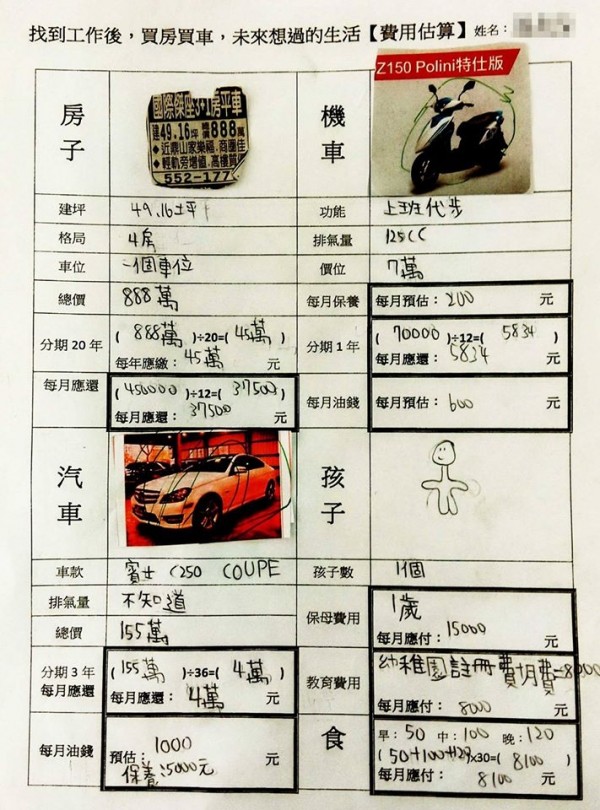 找到工作後，買房買車，未來想過的生活【費用估算】姓名：
房子
國際傑座3+1房平車
建49.16坪 總價888萬
◆近鼎山家樂福.商圈佳
◆輕軌旁增值.高樓質感
552-177
建坪 49.16坪
格局 4房
車位 一個車位
總價 888萬
分期 20 年 ( 888萬 )÷20=( 45萬 )
每年應繳：45萬 元
每月應還 (450000 )÷12=( 37500 )
每月應還：37500 元
機車
Z150 Polini特仕版
功能 上班代步
排氣量 125CC
價位 7萬
每月保養 每月預估：200 元
分期 1 年 ( 70000 )÷12=( 5834 )
每月應還：5834 元
每月油錢 每月預估：600 元
汽車
車款 賓士 C250 COUPE
排氣量 不知道
總價 155萬
分期 3 年 (155萬 )÷36=( 4萬 )
每月應還 每月應還：4萬 元
每月油錢 預估：1000 元
保養：5000元
孩子
孩子數 1個
保母費用 1歲
每月應付：15000 元
教育費用 幼稚園註冊費+月費=8000
每月應付：8000 元
食
早：50 中：100 晚：120
( 50+100+120 )x30=( 8100 )
每月應付：8100 元